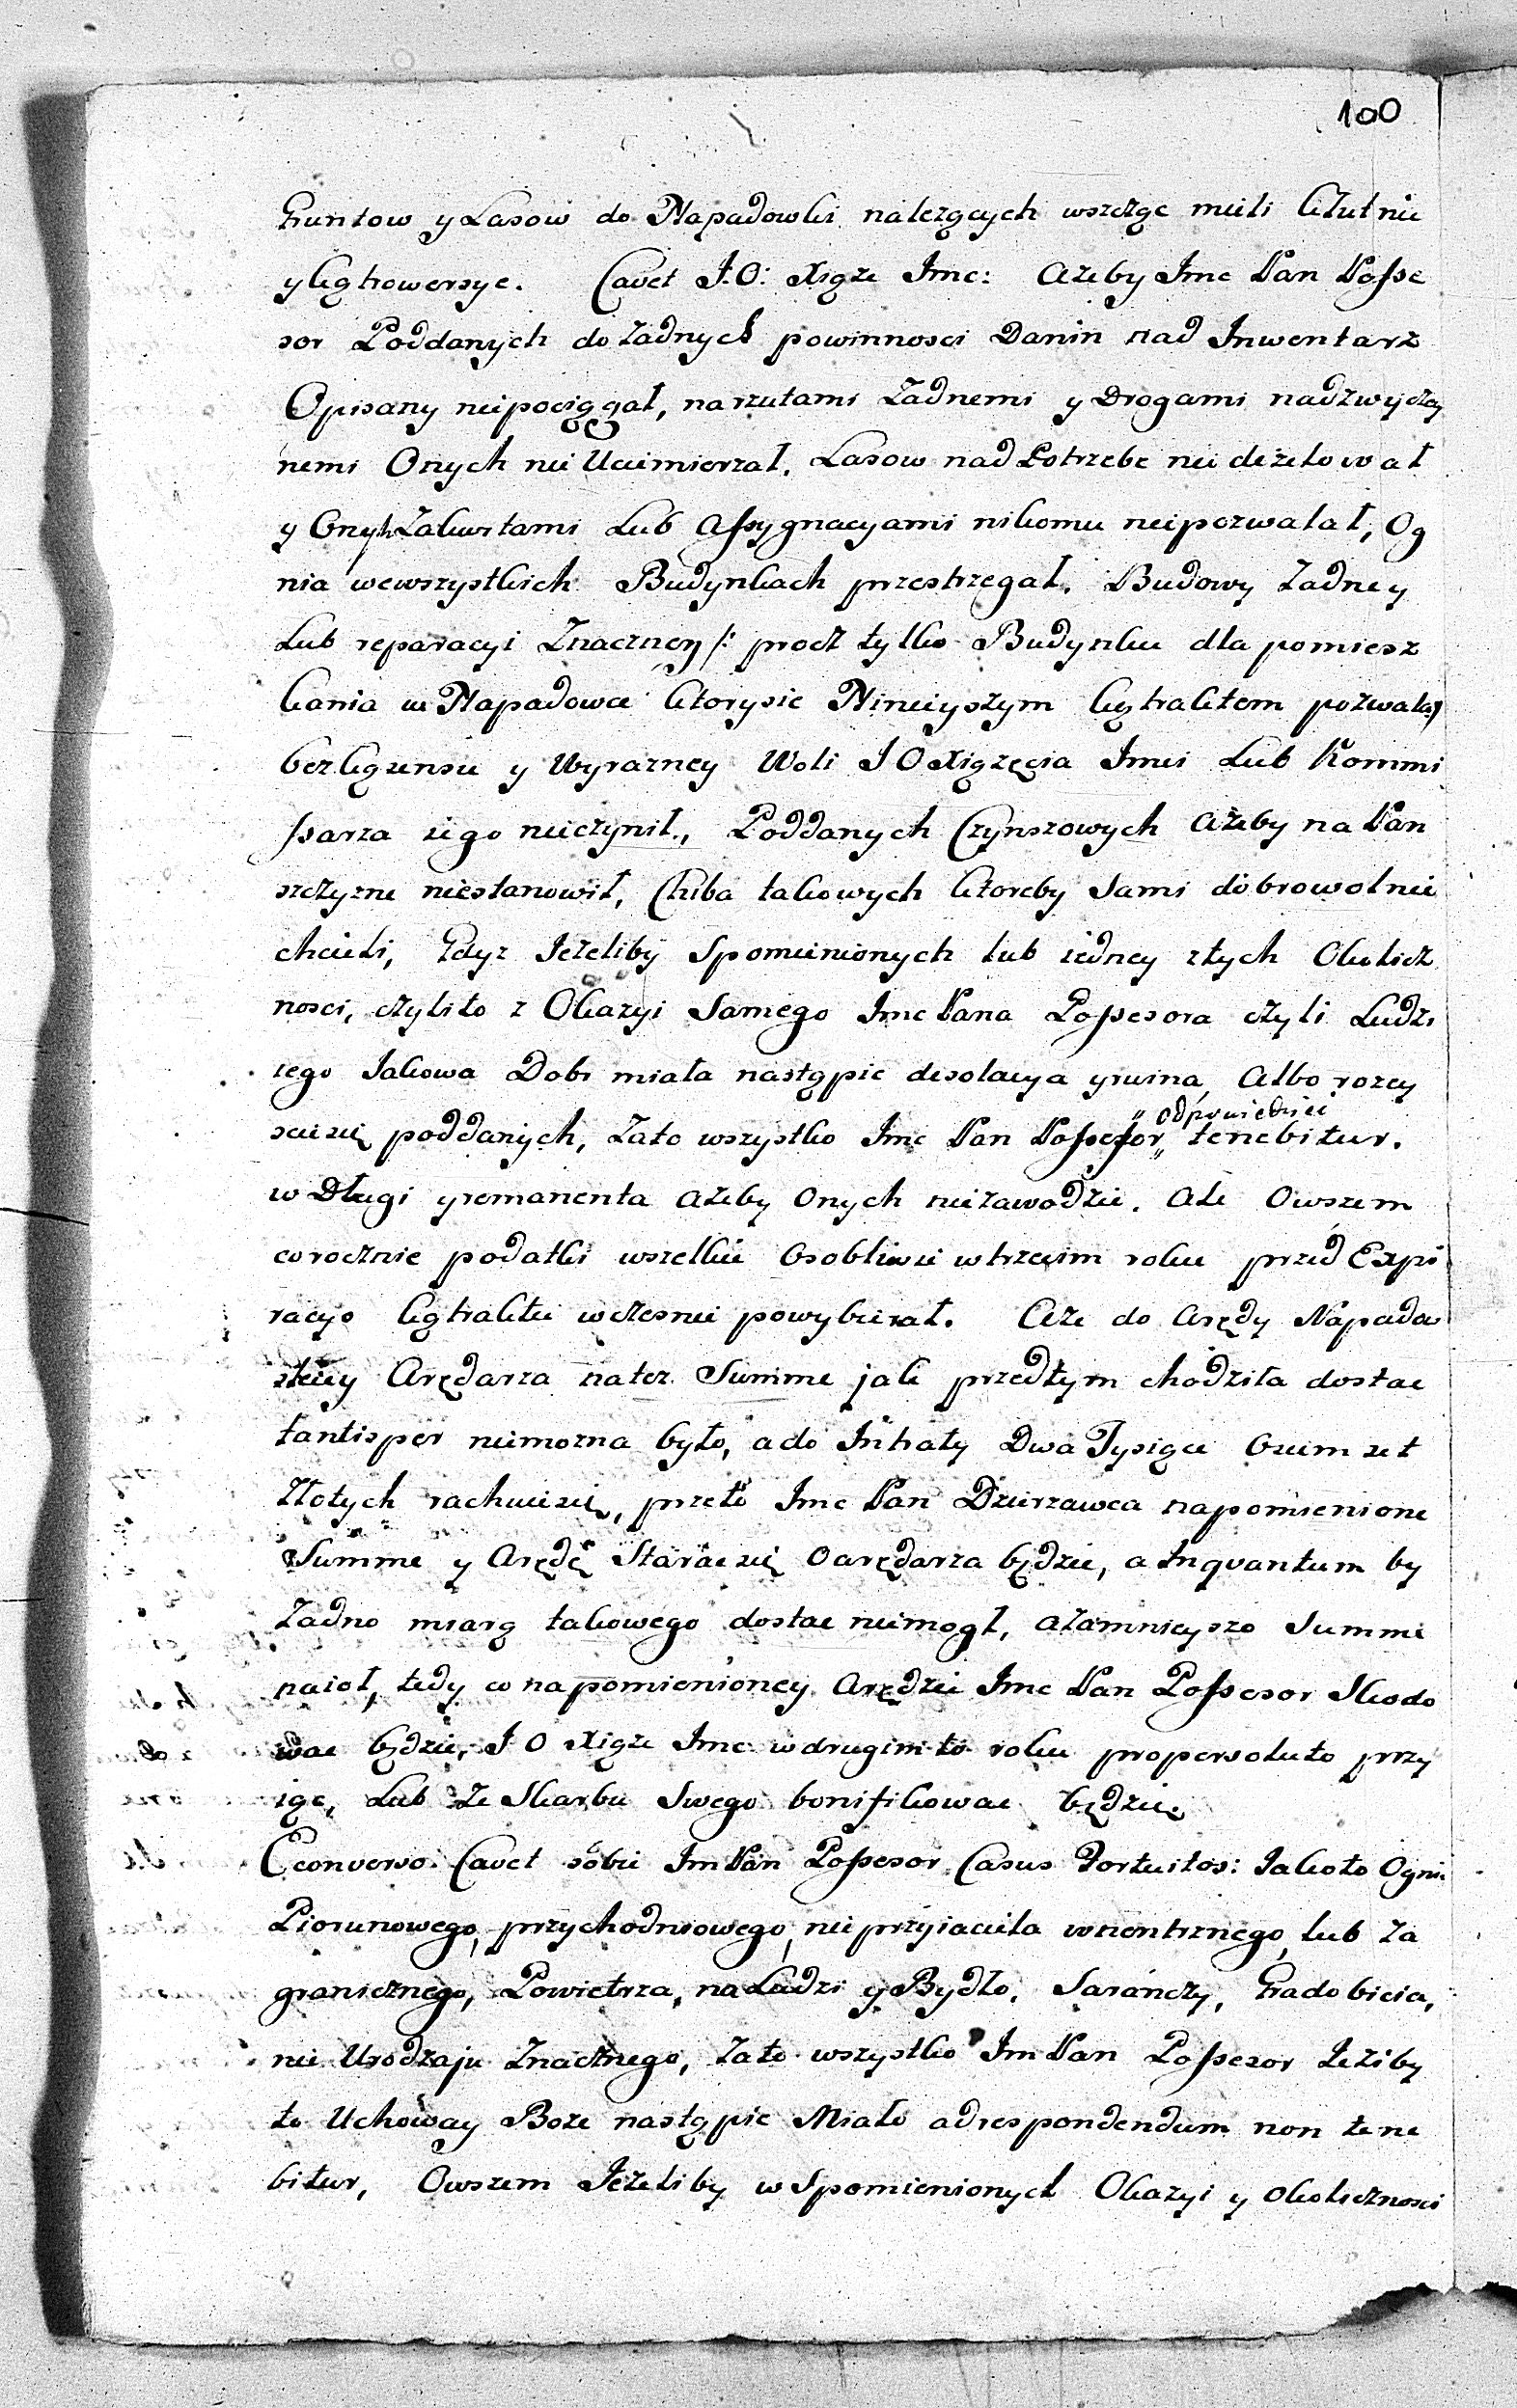 100
Gruntow y Lasow do Napadowki należących wszcząc mieli kłutnie
y kątrowersye. Cavet J: O: Xiąże Jmc: Ażeby Jmc Pan Posse
sor Poddanych do żadnych powinnosci Danin nad Inwentarz
Opisany niepociągał, narzutami żadnemi y Drogami nadzwyczay
nemi Onych nie Uciemierzał. Lasow nad Potrzebe nie dezelował
y Onych Zakwitami Lub Assygnacyami nikomu niepozwalał, Og
nia wewszystkich Budynkach przestrzegał. Budowy żadney
Lub reparacyi Znaczney /: procz tylko Budynku dla pomiesz
kania w Napadowce ktorysie Ninieyszym kątraktem pozwala:/
bez kąsensu y Wyrazney Woli J O Xiążęcia Jmci Lub Kommi
ssarza iego nieczynił, Poddanych Czynszowych Ażeby na Pan
szczyzne niestanowił, Chiba takowych ktoreby Sami dobrowolnie
chcieli, Gdyż Jeżeliby Spomienionych lub iedney ztych Okolicz
nosci, czylito z Okazyi Samego Jmc Pana Possesora czyli Ludzi
iego Jakowa Dobr miała nastąpic desolacya yruina, Albo rozey
scie się poddanych, Zato wszystko Jmc Pan Possessor „odpowiedziec„ tenebitur.
w Długi yremanenta Ażeby Onych niezawodzie. Ale Owszem
corocznie podatki wszelkie Osobliwie wtrzecim roku przed Expi
racyo kątraktu wczesnie powybierał. A że do Arędy Napadow
skiey Arędarza natez Summe jak przedtym chodziła dostac
tantisper niemozna było, a do Intraty Dwa Tysiące Osiem set
Złotych rachuie się, przeto Jmc Pan Dzierzawca napomienione
Summe y Arędę Starac się oarędarza będzie, a Inquantum by
Zadno miarą takowego dostac niemogł, Azamnieyszo Summe
naioł, tedy co napomienioney Arędzie Jmc Pan Possesor Skodo
wac będzie, J O Xiąże Jmc w drugim to roku propersoluto przy
iąc, Lub ze Skarbu Swego bonifikowac będzie.
Econverso Cavet sobie Jm Pan Possesor Casus Fortuitos: Jakoto Ognia
Piorunowego, przychodniowego, nieprzyiaciela wnentrznego, lub Za
granicznego, Powietrza, na Ludzi y Bydło, Saranczy, Gradobicia,
nie Urodzaju Znacznego, Zato wszystko Jm Pan Possesor Jeziby
to Uchoway Boze nastąpic Miało adrespondendum non tene
bitur, Owszem Jeżeliby wSpomienionych Okazyi y Okolicznosci